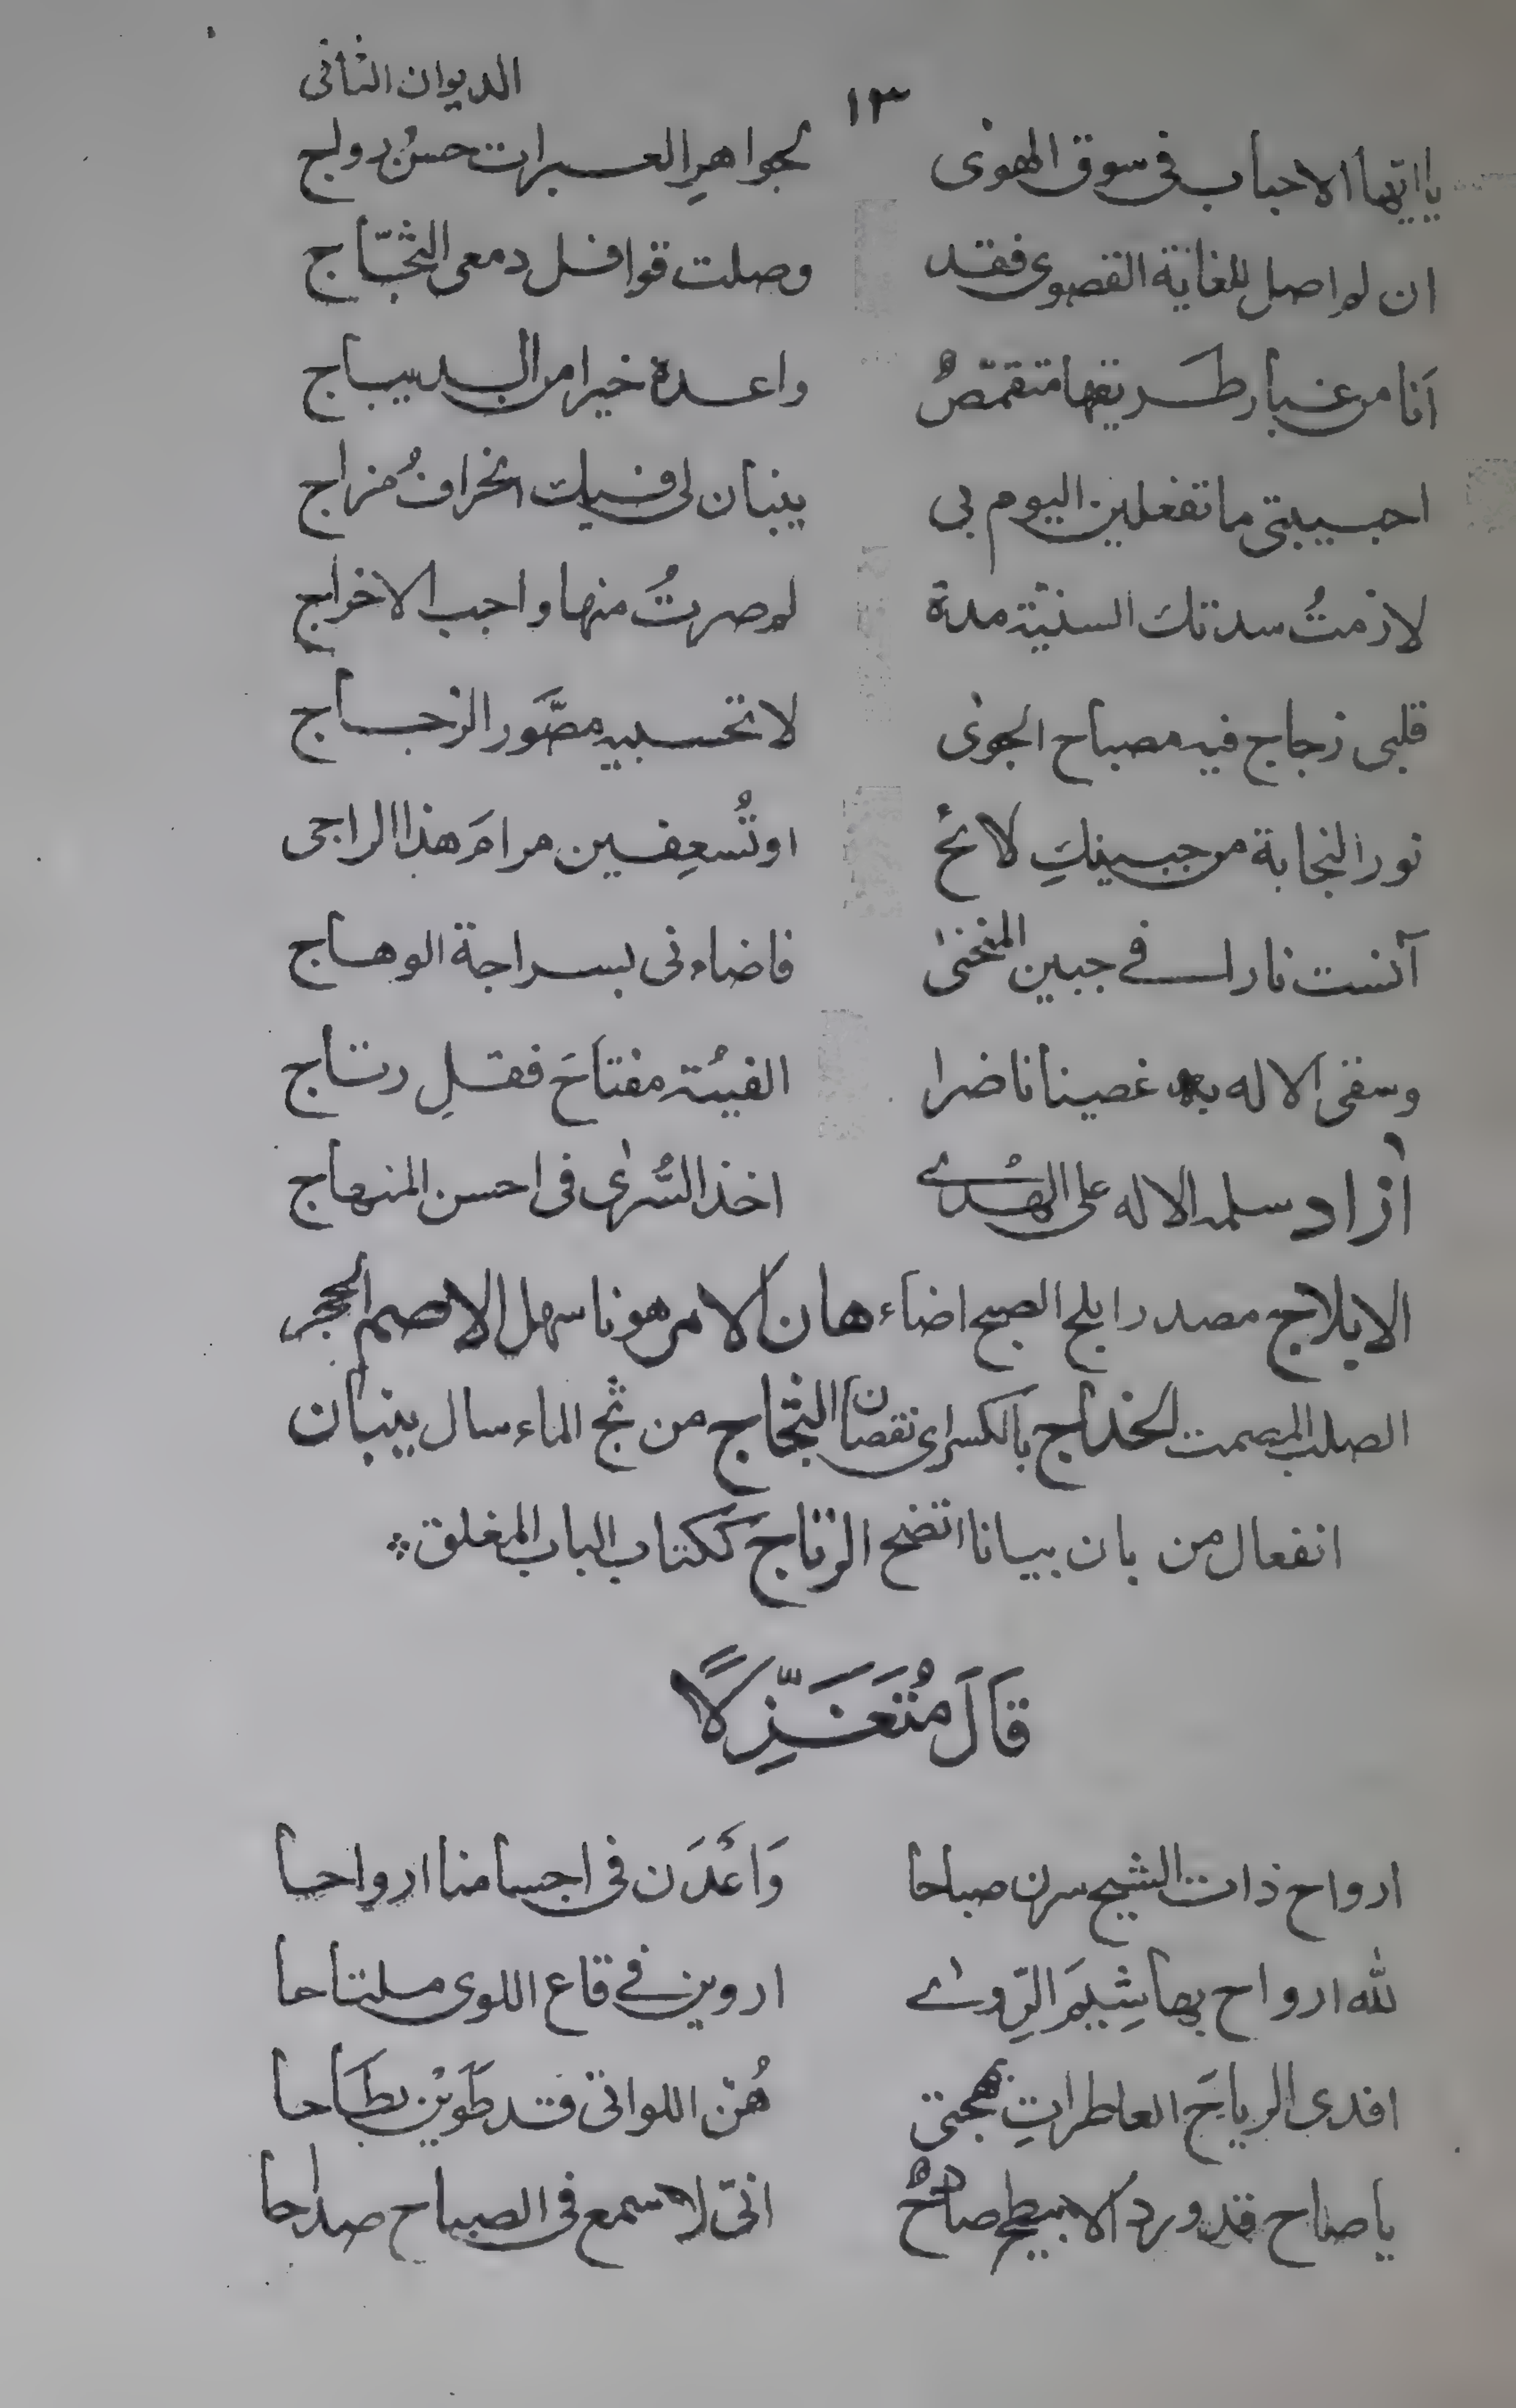 ١٣ الديوان الثانى
يا ايها الاحباب فى سوق الهوى لجواهرِ العبرات حسنُ رواج
ان لم اصل للغاية القصوى فقد وصلت قوافل دمعى الثجّاج
اَنا من غبار طريقها متقمّصٌ واعده خيرا من الديباج
احبيبتى ما تفعلين اليوم بى ينبان لى فيك انحرافُ مزاج
لازمتُ سدتك السنيّة مدة لم صرتُ منها واجب الاخراج
قلبى زجاج فيه مصباح الجوى لا تحسبيه مصَّور الزجاج
نور النجابة من جبينكِ لائحٌ او تُسعِفين مرامَ هذا الراجى
آنست نارا فى جبين المنحنىٰ فاضاءنى بسراجة الوهاج
وسقى الاله به غصينا ناضرا الفيتُه مفتاحَ قفلِ رتاج
اٰزاد سلمه الاله على الهُدىٰ اخذ السُّرىٰ فى احسن المنهاج
الابلاج مصدر ابلج الصبح اضاء هان الامر هونا سهل الاصم الحجر
الصلب المصمت الخداج بالكسر اى نقصان الثجاج من ثج الماء سال ينبان
انفعال من بان بيانا اتضح الرتاج ككتاب الباب المغلق
قَالَ مُتَغَزِّلًا
ارواح ذات الشيح سرن صباحا وَاَعَدْنَ فى اجسامنا ارواحا
لله ارواح بها شِيَمَ الرِّوىٰ اروين فى قاع اللوى ملتاحا
افدى الرياحَ العاطراتِ بمهجتى هُنّ اللواتى قد طَوَيْن بطَاحا
يا صاح قد ورد الابيطح صادحٌ انّى لاسمع فى الصباح صداحا